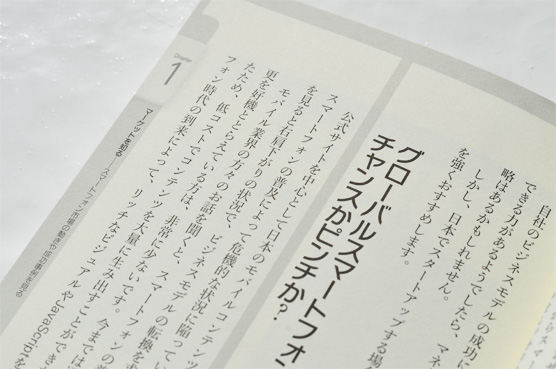 自社のビジネスモデルの成功に
できる力があるようでしたら、マネ
略はあるかもしれません。
しかし、日本でスタートアップする場合
を強くおすすめします。
グローバルスマートフォ
チャンスかピンチか?
公式サイトを中心として日本のモバイルコンテンツ
スマートフォンの普及によって危機的な状況に陥ってい
を見ると右肩下がりの状況で、ビジネスモデルの転換を
モバイル業界の方々のお話を聞くと、スマートフォンの
更を好機ととらえている方は、非常に少ないです。今までは
たため、低コストでコンテンツを大量に生み出すことができ
フォン時代の到来によって、リッチなビジュアルやJavaScriptを
Chapter
1
マーケットを知る
スマートフォン市場の動きや成功事例を見る